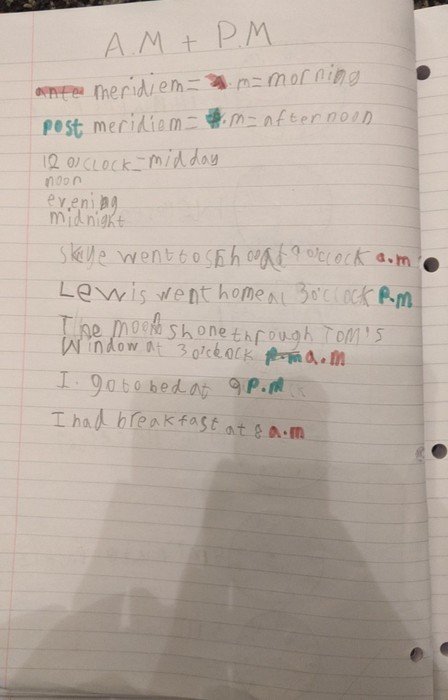 A.M + P.M
ante meridiem = a.m = morning
post meridiem = p.m = afternoon
12 o'clock = midday
noon
evening
midnight
Skye went to school at 9 o'clock a.m
Lewis went home at 3 o'clock P.m
The moon shone through TOM'S
window at 3 o'clock p.m a.m
I. go to bed at 9 P.m
I had breakfast at 8 a.m